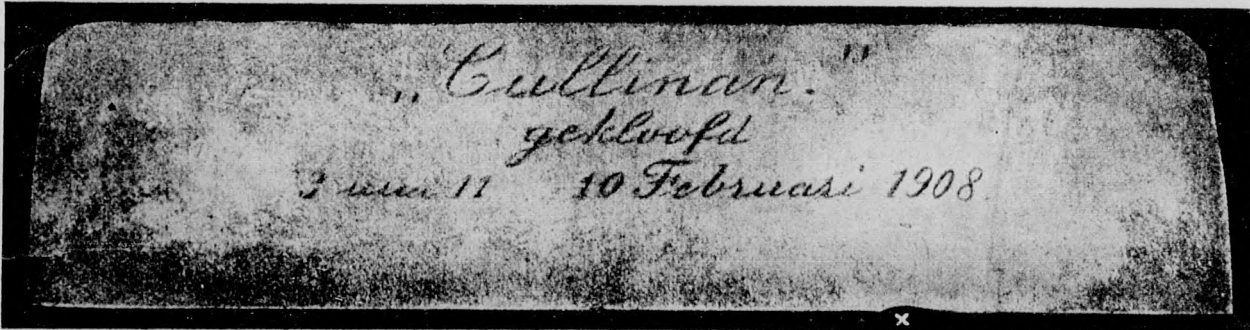 „Cullinan.”
gekloofd
2 uur 11 10 Februari 1908.
x